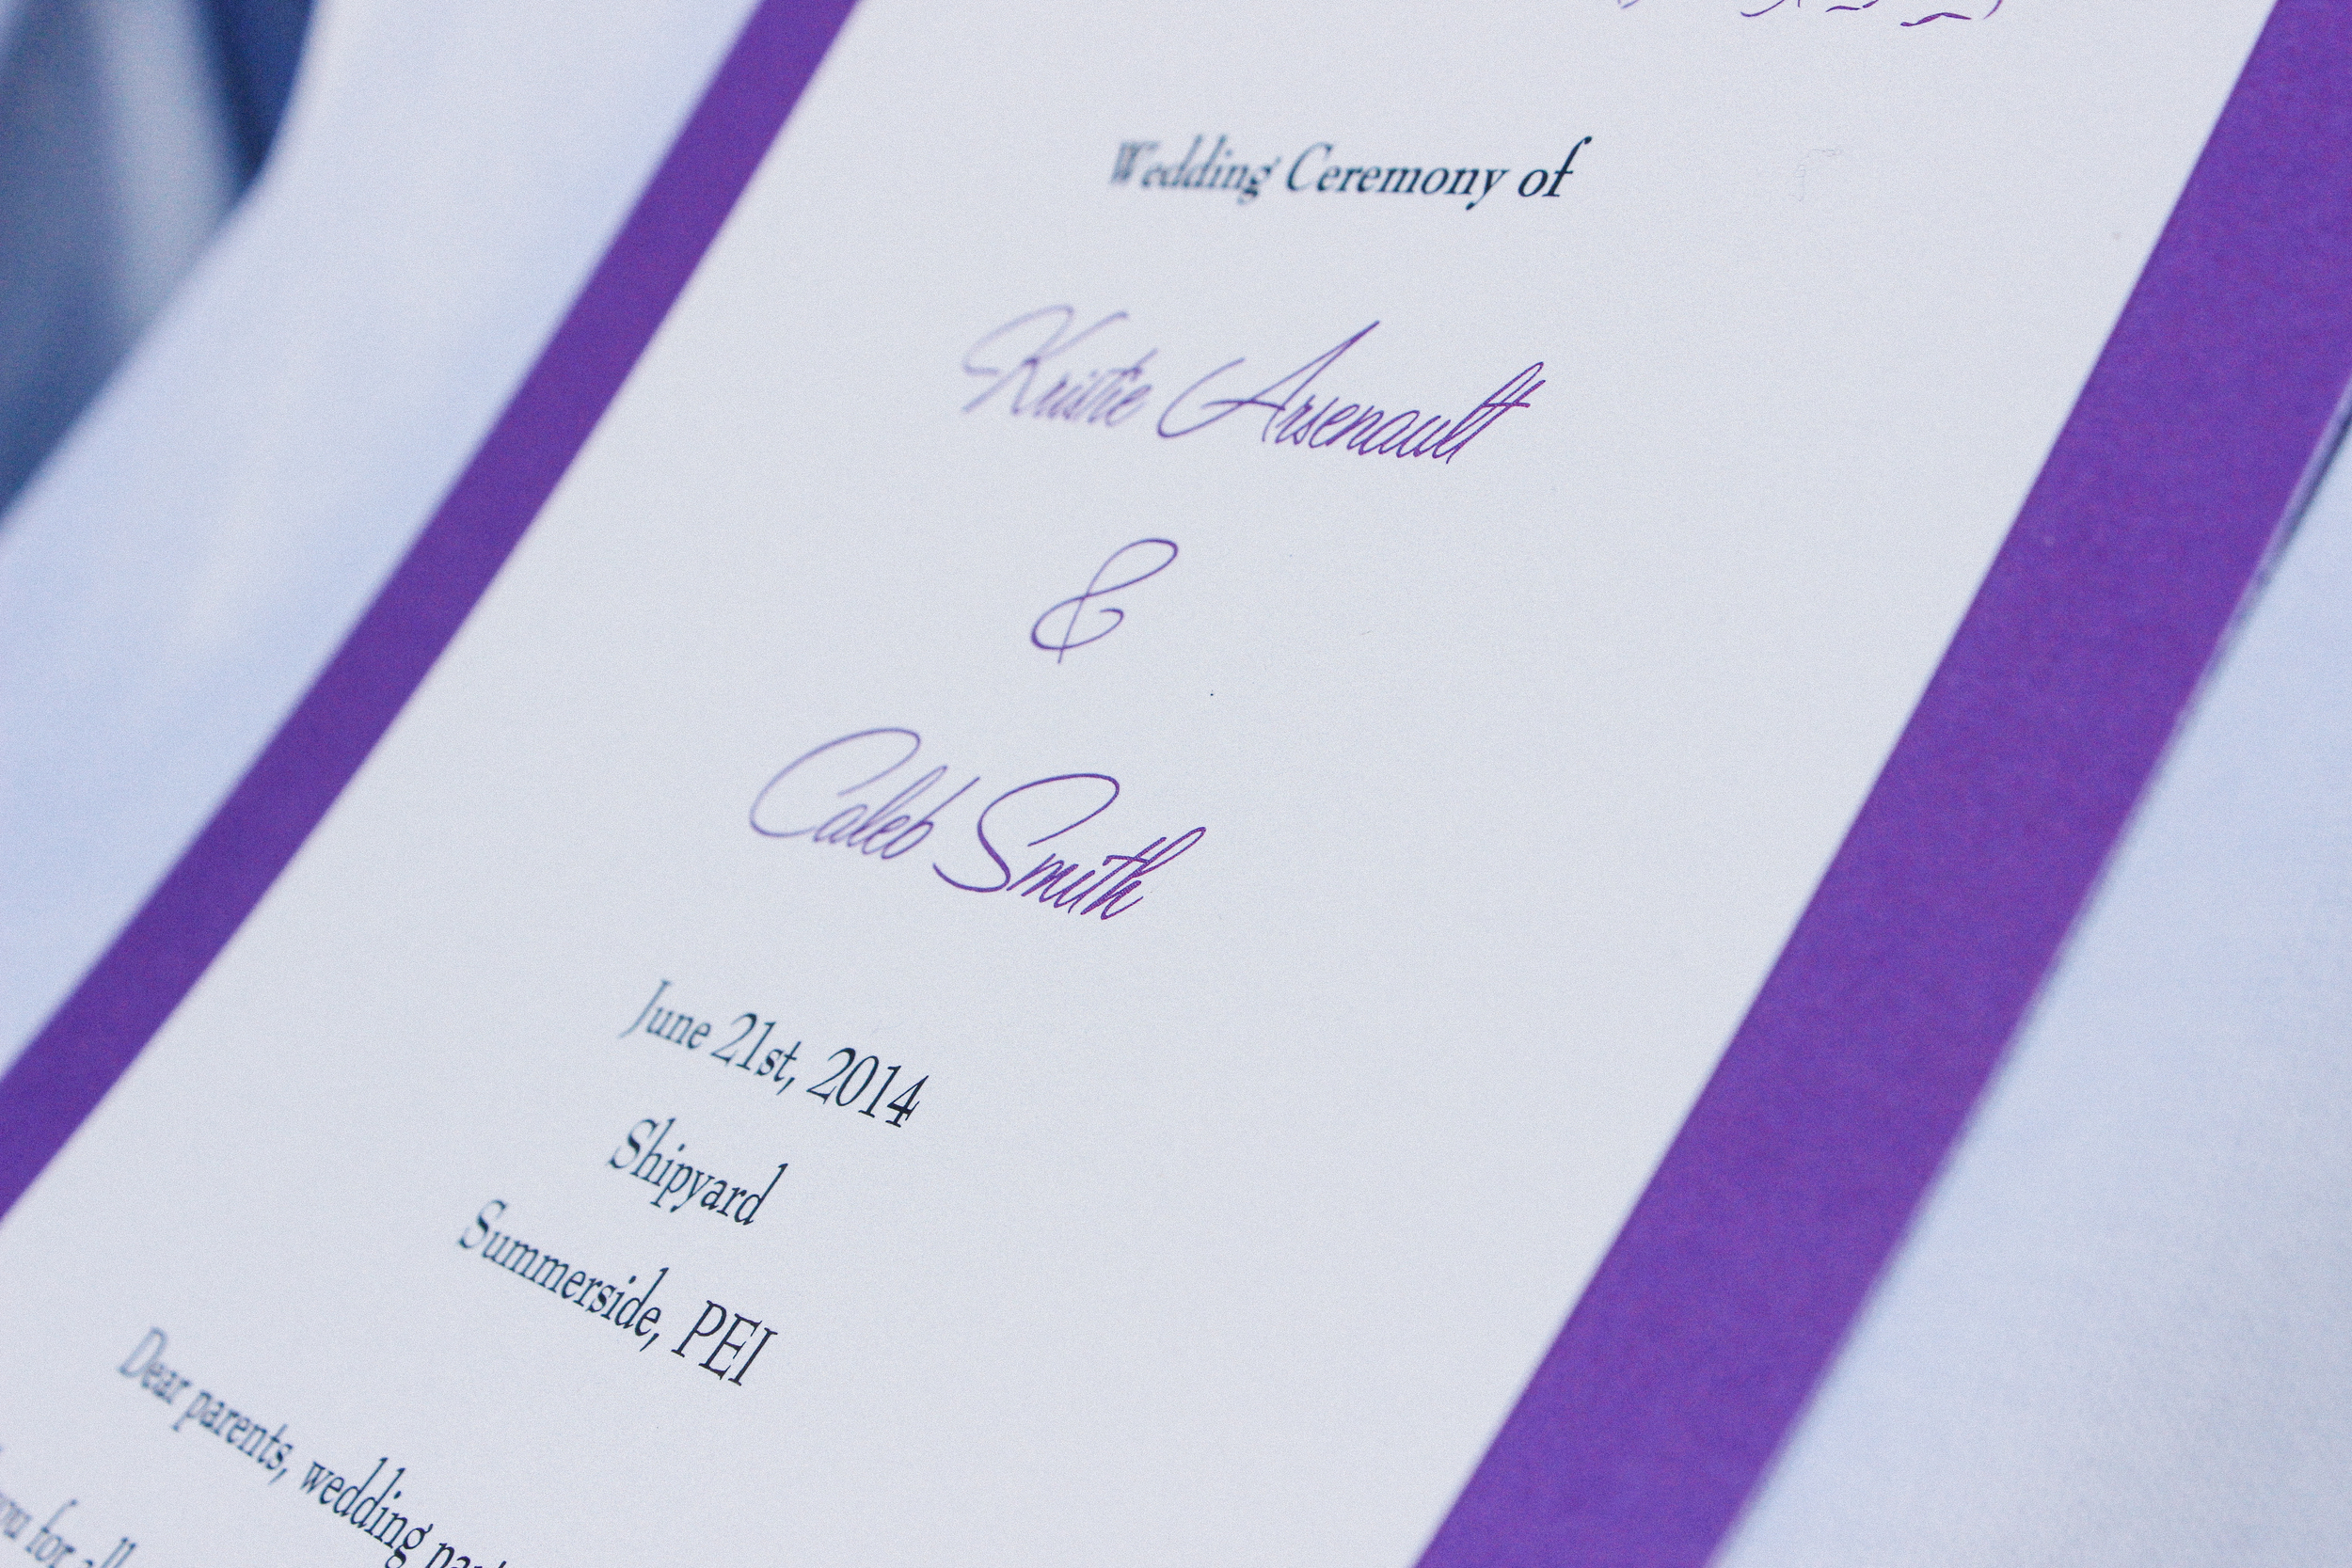 Wedding Ceremony of
Kristie Arsenault
&
Caleb Smith
June 21st, 2014
Shipyard
Summerside, PEI
Dear parents, wedding
for all